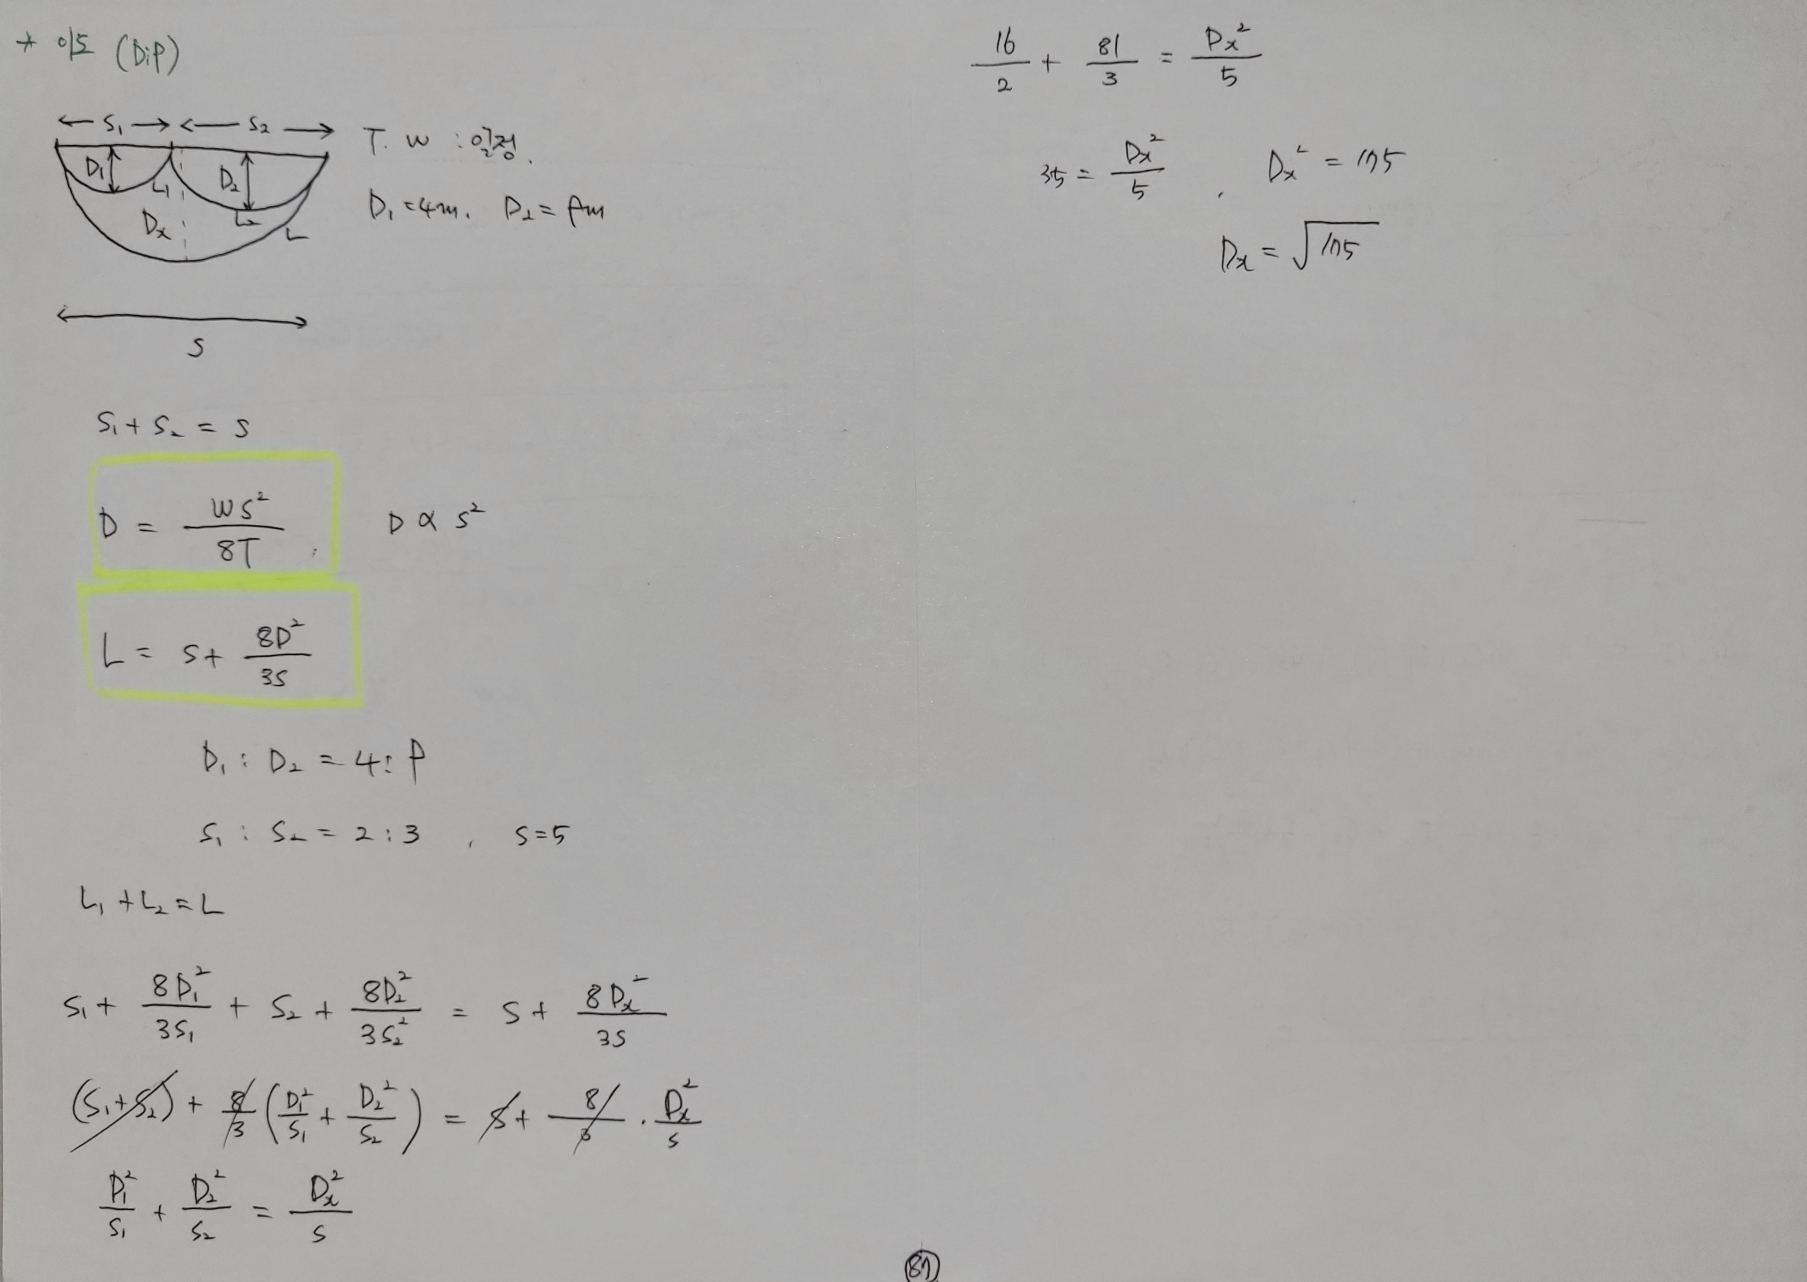 * 이도 (DiP)
S₁ S₂
D₁ L₁ D₂ L₂
Dx L
S
T. W : 일정.
D₁ = 4m. D₂ = 9m
S₁ + S₂ = S
D = WS² / 8T . D ∝ S²
L = S + 8D² / 3S
D₁ : D₂ = 4 : 9
S₁ : S₂ = 2 : 3 , S = 5
L₁ + L₂ = L
S₁ + 8D₁² / 3S₁ + S₂ + 8D₂² / 3S₂² = S + 8Dx² / 3S
(S₁+S₂) + 8/3 (D₁²/S₁ + D₂²/S₂) = S + 8/3 · Dx²/S
D₁²/S₁ + D₂²/S₂ = Dx²/S
16/2 + 81/3 = Dx²/5
35 = Dx²/5 , Dx² = 175
Dx = √175
87